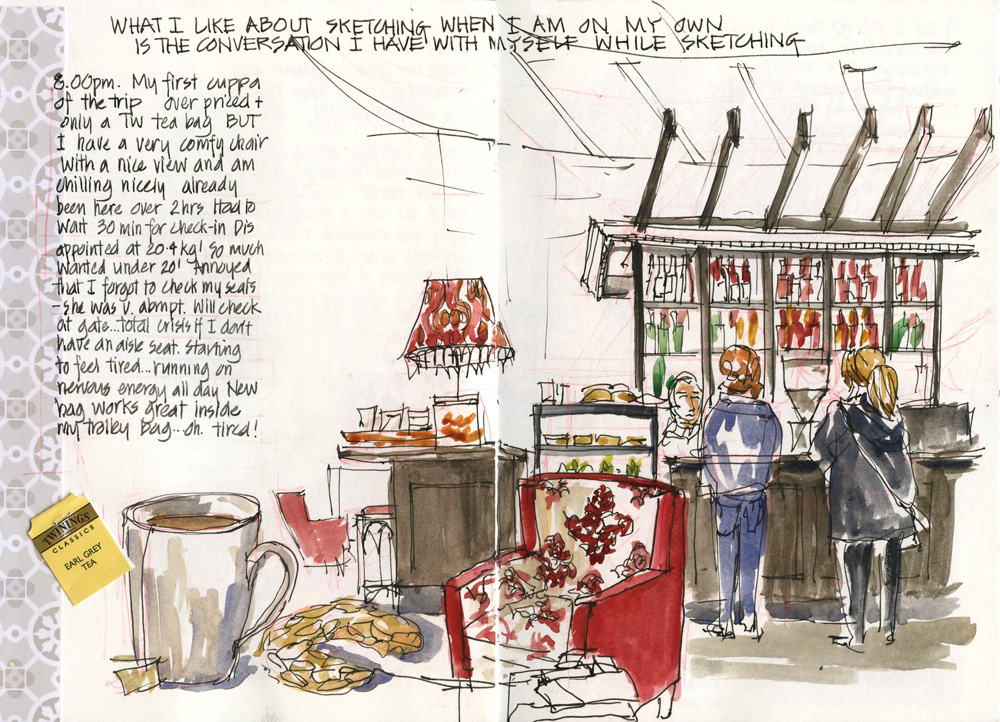 WHAT I LIKE ABOUT SKETCHING WHEN I AM ON MY OWN
IS THE CONVERSATION I HAVE WITH MYSELF WHILE SKETCHING
8.00pm. My first cuppa
of the trip over priced +
only a TW tea bag BUT
I have a very comfy chair
with a nice view and am
chilling nicely already
been here over 2hrs Had to
wait 30 min for check-in Dis
appointed at 20.4kg! So much
wanted under 20! Annoyed
that I forgot to check my seats
- she was v. abrupt. Will check
at gate...total crisis if I don't
have an aisle seat. starting
to feel tired...running on
nervous energy all day New
bag works great inside
my trolley bag...oh. tired!
TWININGS
CLASSICS
EARL GREY
TEA